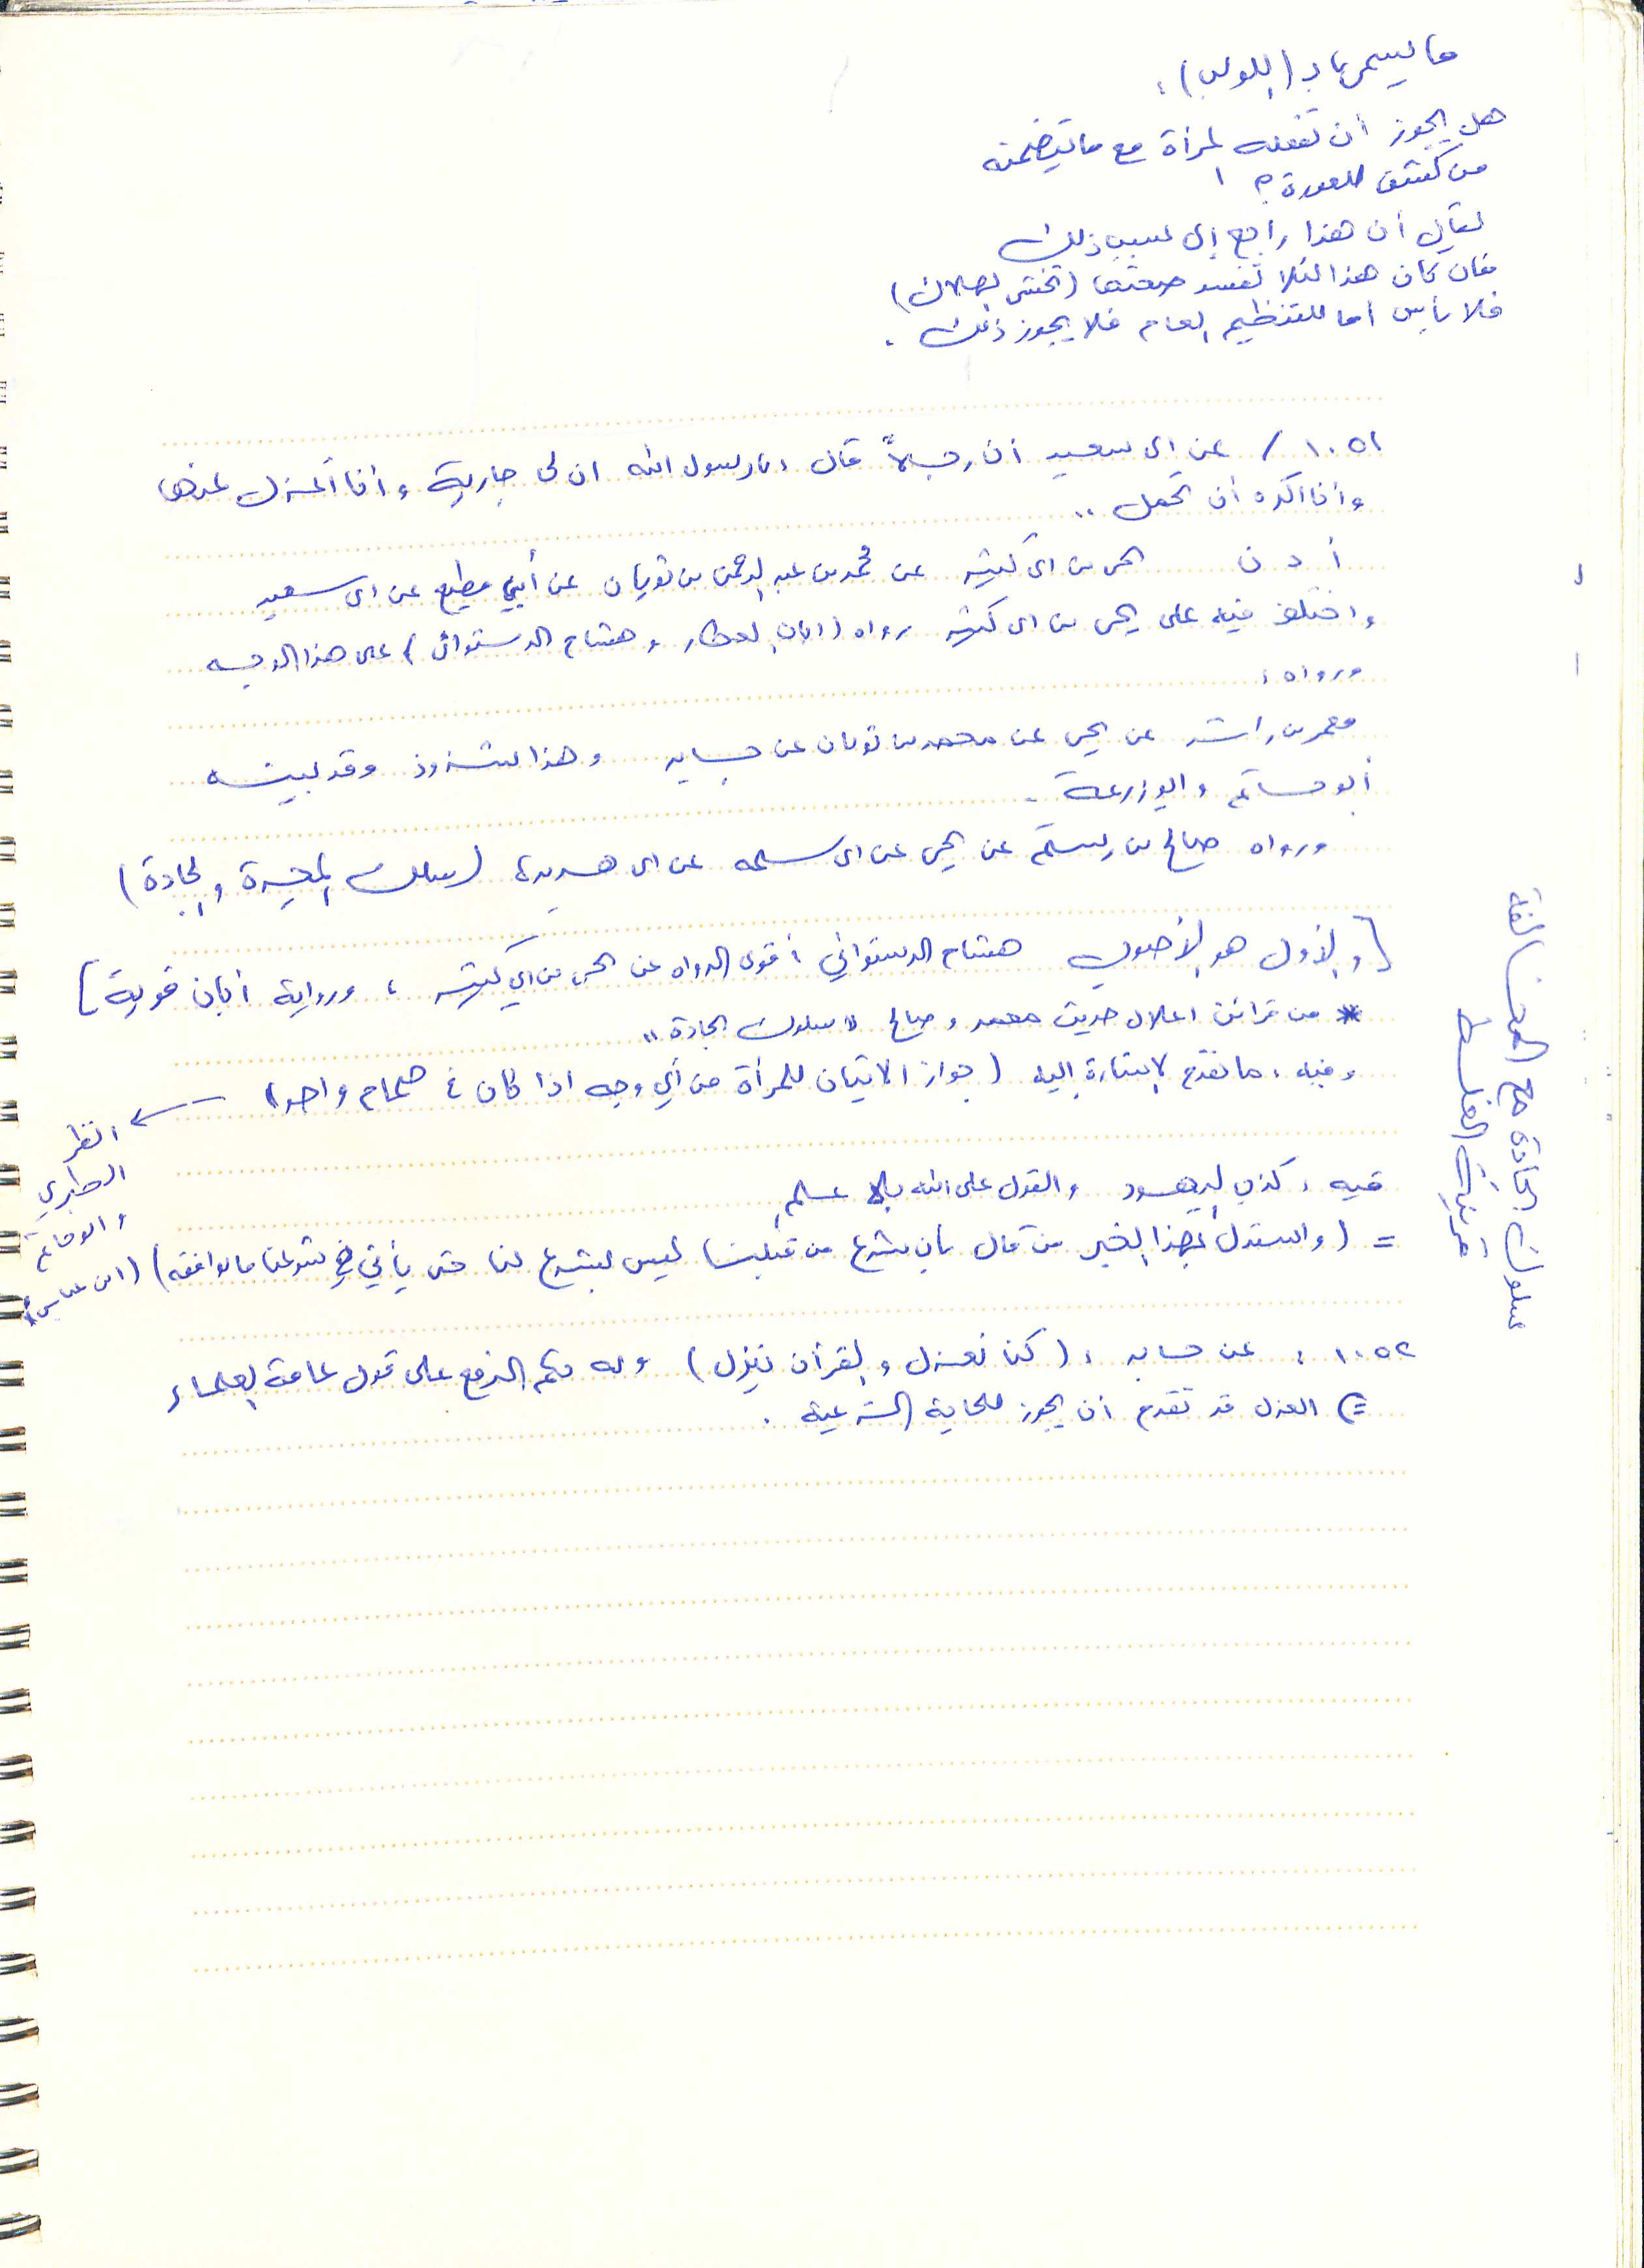 ما يسمى بـ (اللولب) :
هل يجوز أن تفعله المرأة مع ما يتضمنه
من كشف العورة ؟
يقال أن هذا راجع إلى سبب ذلك
فان كان هذا لئلا تفسد صحتها (تخشى الهلاك)
فلا بأس أما للتنظيم العام فلا يجوز ذلك .
١٠٥١ / عن ابي سعيد أن رجلاً قال : يارسول الله ان لي جارية و أنا أعزل عنها
و أنا اكره أن تحمل ..
أ د ن يحيى بن ابي كثير عن محمد بن عبد الرحمن بن ثوبان عن أبي مطيع عن ابي سعيد
واختلف فيه على يحيى بن ابي كثير رواه (ابان العطار و هشام الدستوائي) على هذا الوجه
ورواه :
معمر بن راشد عن يحيى عن محمد بن ثوبان عن جابر وهذا شذوذ وقد بينه
أبو حاتم و ابو زرعة .
ورواه صالح بن رستم عن يحيى عن ابي سلمه عن ابي هريرة (سلك المجرة والجادة)
[والأول هو الأصوب هشام الدستوائي أقوى الرواه عن يحيى بن أبي كثير ، ورواية أبان قوية]
* من قرائن اعلال حديث معمر و صالح " سلوك الجادة "
وفيه : ما تقدم الاشارة إليه (جواز الاتيان للمرأة من أي وجه اذا كان في صمام واحد)
انظر
الطبري
وابو حاتم
(ابن عباس)
فيه : كذب اليهود والقول على الله بلا علم
= (واستدل بهذا الخبر من قال بأن شرع من قبلنا ليس بشرع لنا حتى يأتي في شرعنا ما يوافقه)
١٠٥٢ : عن جابر : (كنا نعزل والقرآن ينزل) وله حكم الرفع على قول عامة العلماء
=) العزل قد تقدم أن يجوز للحاجة الشرعية .
سلوك الجادة مع المخالفة
قرينة الغلط